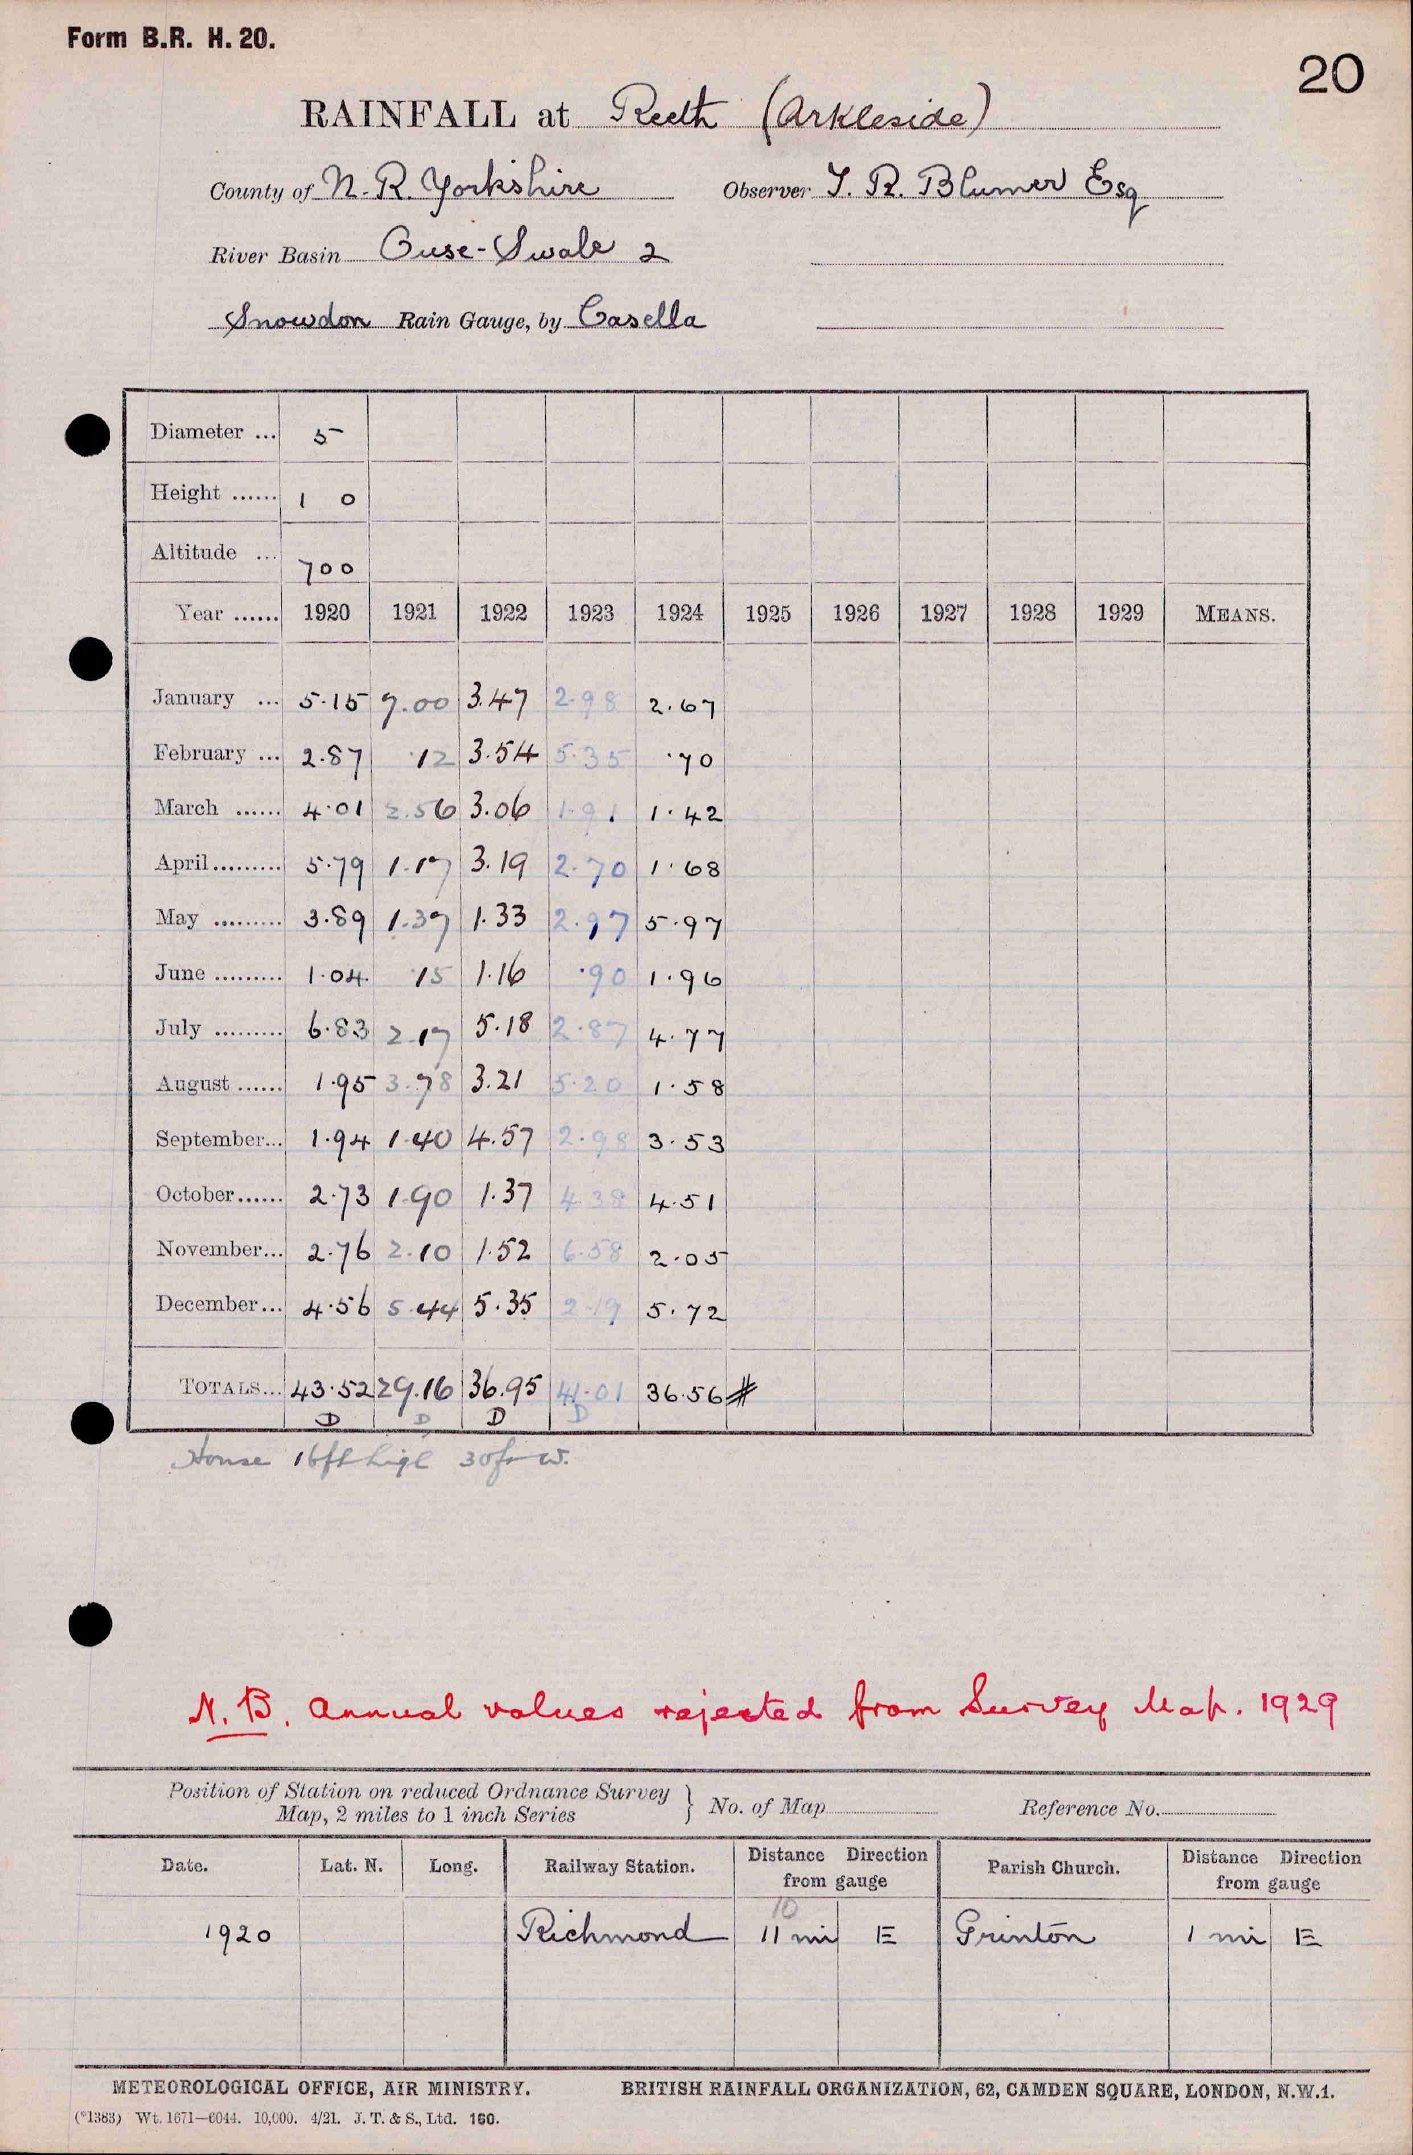 Form B.R. H. 20.
20
RAINFALL at Reeth (Arkleside)
County of N. R. Yorkshire Observer T. R. Blumer Esq
River Basin Ouse-Swale 2
Snowdon Rain Gauge, by Casella
Diameter ... 5
Height ...... 1 0
Altitude ... 700
Year ...... 1920 1921 1922 1923 1924 1925 1926 1927 1928 1929 MEANS.
January ... 5.15 7.00 3.47 2.98 2.67
February ... 2.87 .12 3.54 5.35 .70
March ...... 4.01 2.56 3.06 1.91 1.42
April......... 5.79 1.17 3.19 2.70 1.68
May ......... 3.89 1.37 1.33 2.97 5.97
June ......... 1.04 .15 1.16 .90 1.96
July ......... 6.83 2.17 5.18 2.87 4.77
August ...... 1.95 3.78 3.21 5.20 1.58
September... 1.94 1.40 4.57 2.98 3.53
October...... 2.73 1.90 1.37 4.38 4.51
November... 2.76 2.10 1.52 6.58 2.05
December... 4.56 5.44 5.35 2.19 5.72
TOTALS... 43.52 29.16 36.95 41.01 36.56 #
D D D D
House 16ft high 30ft W.
N.B. Annual values rejected from Survey Map. 1929
Position of Station on reduced Ordnance Survey
Map, 2 miles to 1 inch Series } No. of Map Reference No.
Date. Lat. N. Long. Railway Station. Distance Direction from gauge Parish Church. Distance Direction from gauge
10
1920 Richmond 11 mi E Grinton 1 mi E
METEOROLOGICAL OFFICE, AIR MINISTRY. BRITISH RAINFALL ORGANIZATION, 62, CAMDEN SQUARE, LONDON, N.W.1.
(*1383) Wt. 1671—6044. 10,000. 4/21. J. T. & S., Ltd. 160.